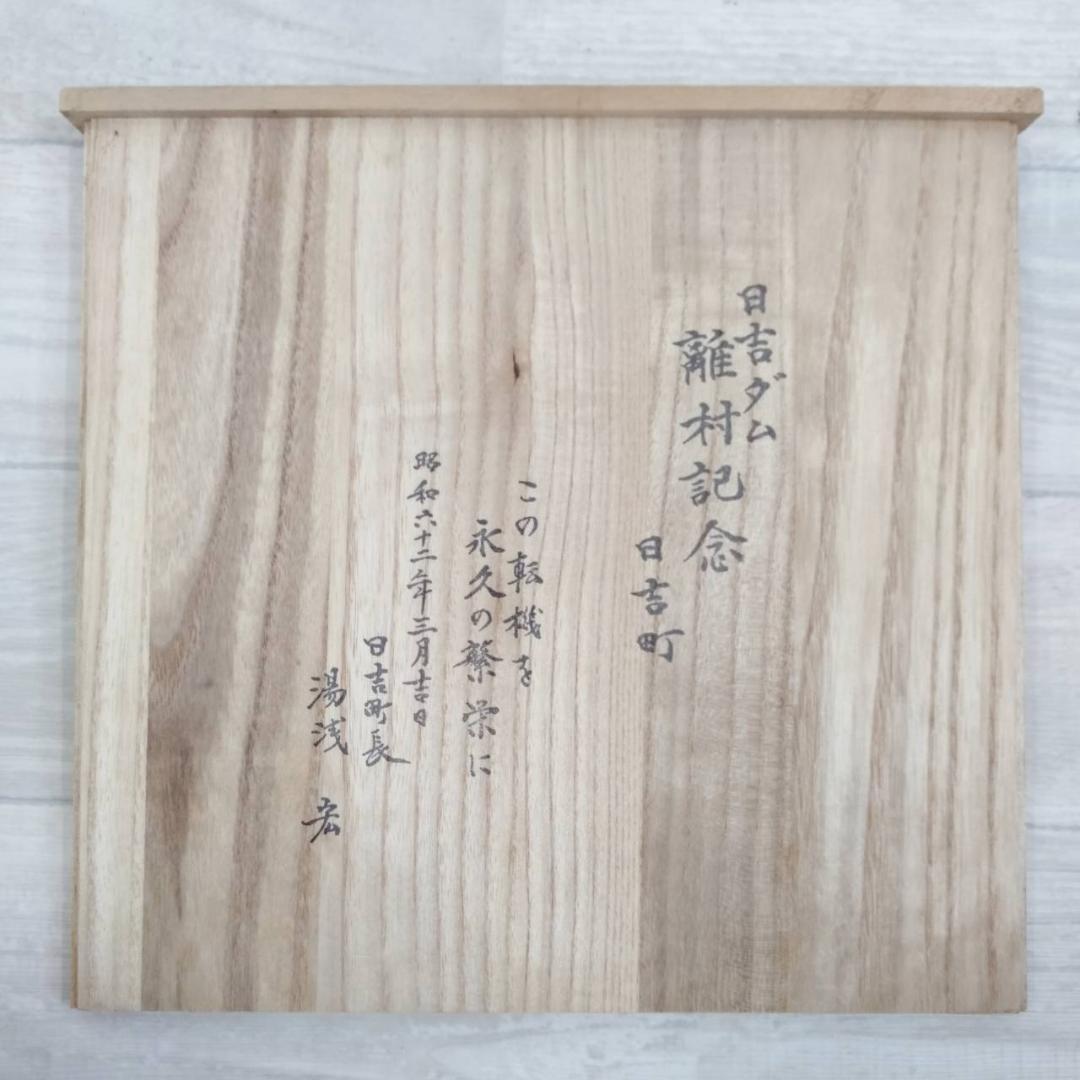 日吉ダム
離村記念
日吉町
この転機を
永久の繁栄に
昭和六十二年三月吉日
日吉町長
湯浅 宏